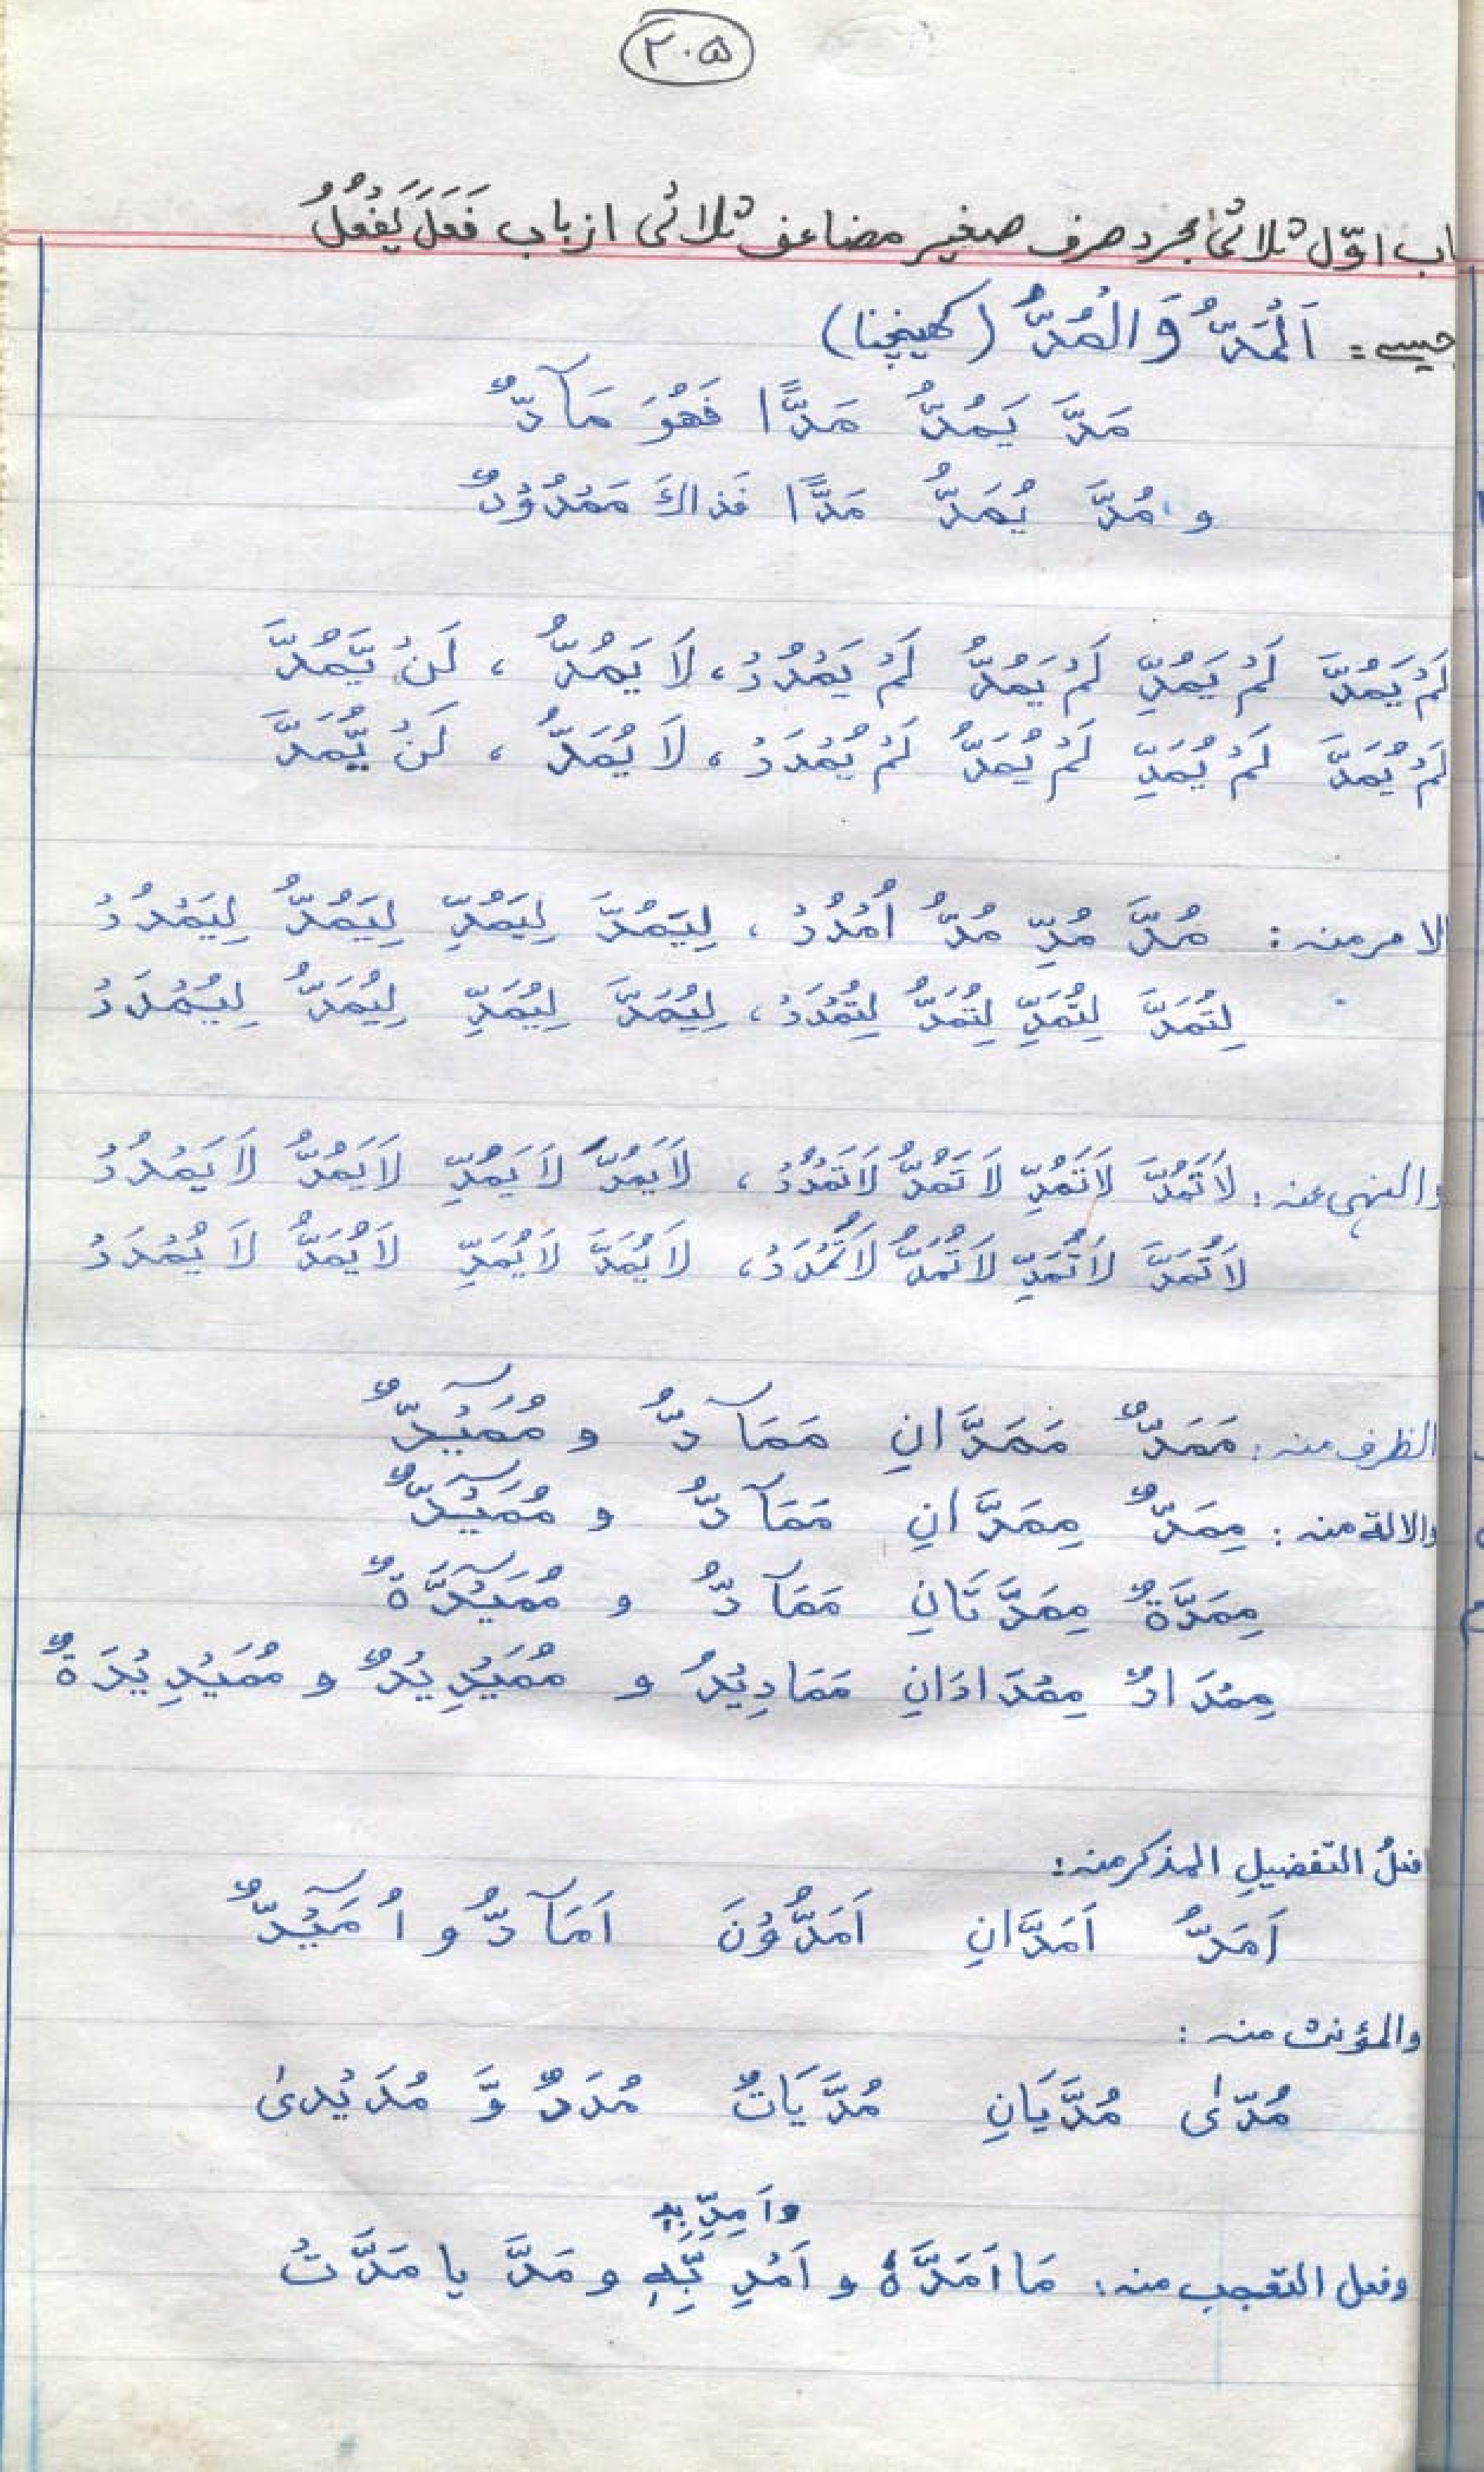 ۲۰۵
باب اوّل ثلاثی مجرد صرف صغیر مضاعف ثلاثی از باب فَعَلَ یَفْعُلُ
جیسے = اَلْمَدُّ وَالْمُدُّ (کھینچنا)
مَدَّ یَمُدُّ مَدًّا فَهُوَ مَآدٌّ
و مُدَّ یُمَدُّ مَدًّا فَذَاكَ مَمْدُوْدٌ
لَمْ یَمُدَّ لَمْ یَمُدِّ لَمْ یَمُدُّ لَمْ یَمْدُدْ، لَا یَمُدُّ ، لَنْ یَّمُدَّ
لَمْ یُمَدَّ لَمْ یُمَدِّ لَمْ یُمَدُّ لَمْ یُمْدَدْ ، لَا یُمَدُّ ، لَنْ یُّمَدَّ
الامر منه : مُدَّ مُدِّ مُدُّ اُمْدُدْ ، لِیَمُدَّ لِیَمُدِّ لِیَمُدُّ لِیَمْدُدْ
لِتُمَدَّ لِتُمَدِّ لِتُمَدُّ لِتُمْدَدْ، لِیُمَدَّ لِیُمَدِّ لِیُمَدُّ لِیُمْدَدْ
والنهی عنه : لَا تَمُدَّ لَا تَمُدِّ لَا تَمُدُّ لَا تَمْدُدْ ، لَا یَمُدَّ لَا یَمُدِّ لَا یَمُدُّ لَا یَمْدُدْ
لَا تُمَدَّ لَا تُمَدِّ لَا تُمَدُّ لَا تُمْدَدْ، لَا یُمَدَّ لَا یُمَدِّ لَا یُمَدُّ لَا یُمْدَدْ
الظرف منه : مَمَدٌّ مَمَدَّانِ مَمَآدُّ و مُمَیْدٌّ
والالة منه : مِمَدٌّ مِمَدَّانِ مَمَآدُّ و مُمَیْدٌّ
مِمَدَّةٌ مِمَدَّتَانِ مَمَآدُّ و مُمَیْدَّةٌ
مِمْدَادٌ مِمْدَادَانِ مَمَادِیْدُ و مُمَیْدِیْدٌ و مُمَیْدِیْدَةٌ
افعلُ التفضیلِ المذکر منه :
اَمَدُّ اَمَدَّانِ اَمَدُّوْنَ اَمَآدُّ و اُمَیْدٌّ
والمؤنث منه :
مُدّٰی مُدَّیَانِ مُدَّیَاتٌ مُدَدٌ وَّ مُدَیْدٰی
واَمِدِّ بِهٖ
وفعل التعجب منه : مَا اَمَدَّهٗ و اَمْدِ بِّهٖ و مَدَّ یا مَدَّتْ